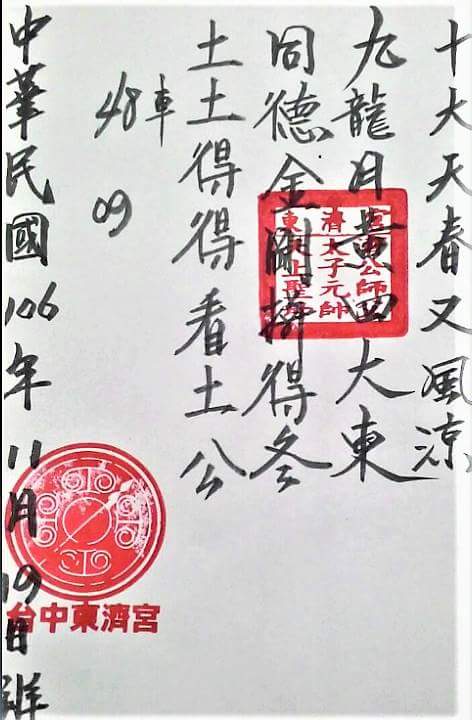 十大天春又風涼
九龍月黃四大東
同德金剛擠得冬
土土得得看土公
48車
09
中華民國106年11月19日
濟公師
太子元帥
聖
台中東濟宮